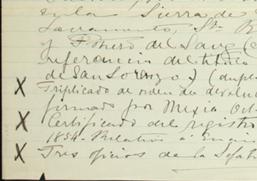 en la Sierra de
Sacramento, Sn. B
y Potrero de San C
Referencia de título
de San Lorenzo) (duplic
Triplicado de orden de devolu
firmado por Mexia Oct
Certificado del registro
1854. Relativo á
Tres oficios de la Sofat